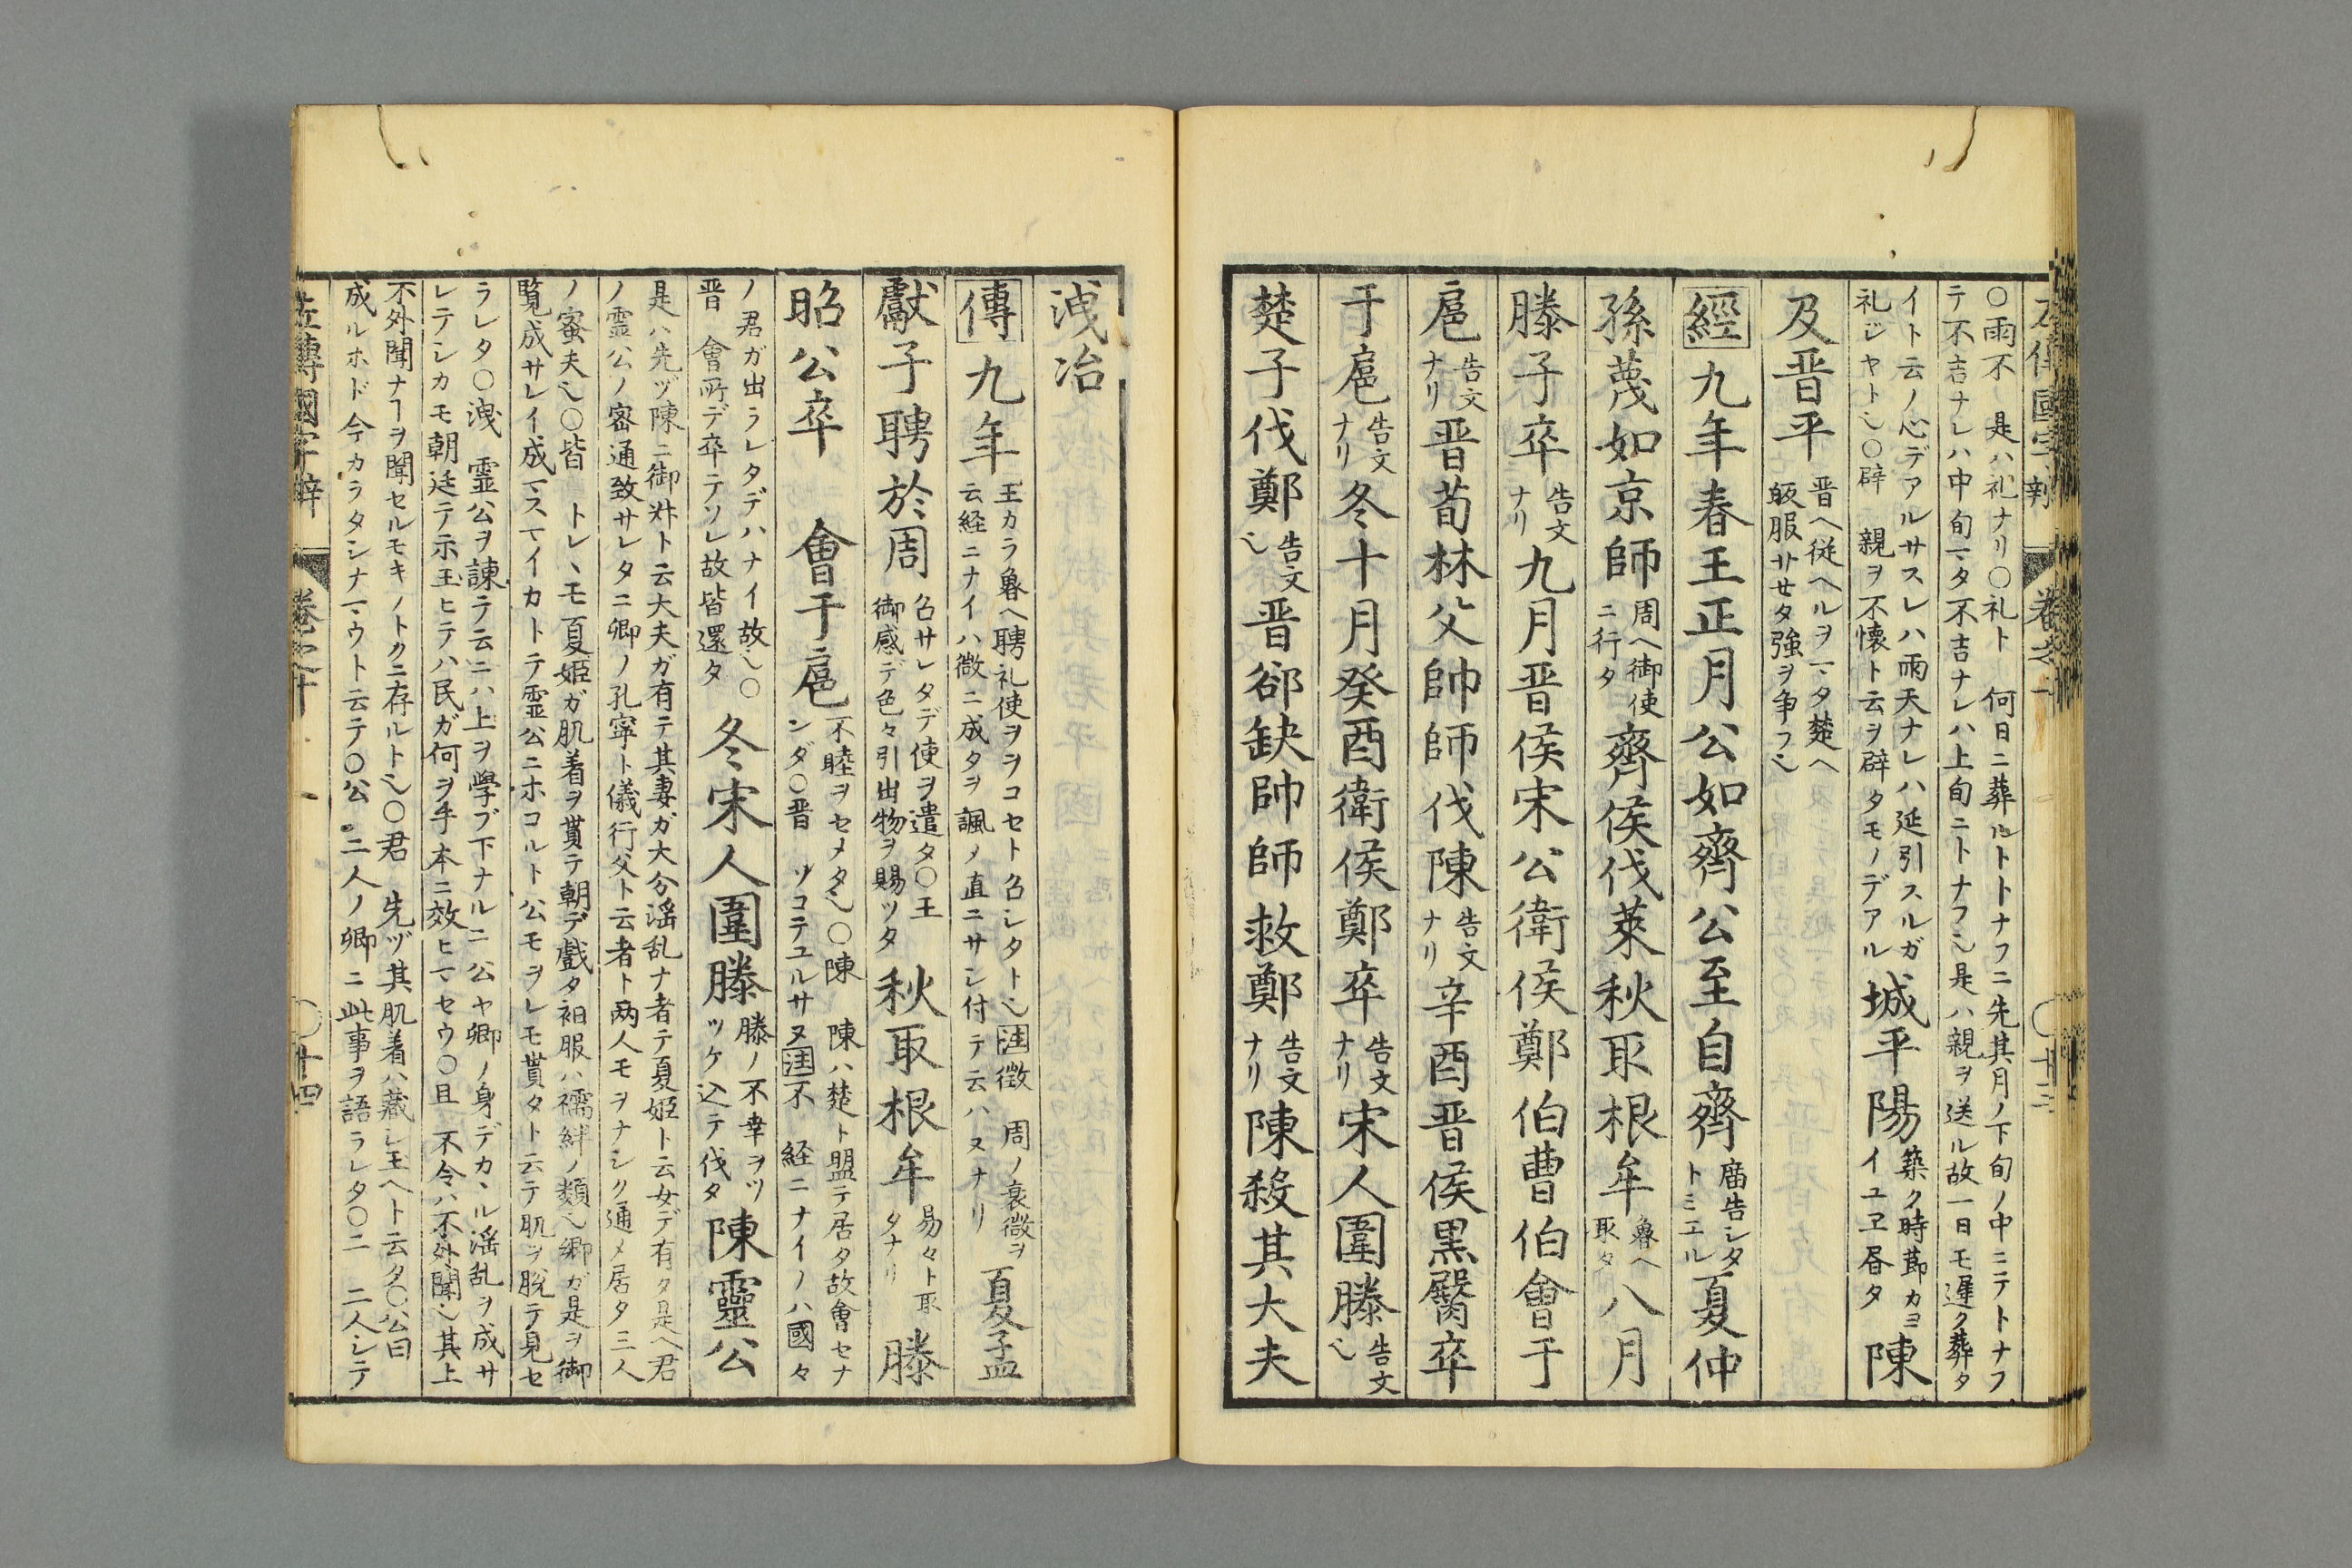 ○雨不 是ハ礼ナリ○礼ト 何日ニ葬ルトトナフニ先其月ノ下旬ノ中ニテトナフ
テ不吉ナレハ中旬マタ不吉ナレハ上旬ニトナフ乀是ハ親ヲ送ル故一日モ遅ク葬タ
イト云ノ心デアルサスレハ雨天ナレハ延引スルガ
礼ジヤト乀○辟 親ヲ不懐ト云ヲ辟タモノデアル
城平陽
築ク時莭カヨ
イユヱ昏タ
陳
及晋平
晋ヘ従ヘルヲマタ楚ヘ
皈服サセタ強ヲ争フ乀
經九年春王正月公如齊公至自齊
廣告シタ
トミエル
夏仲
孫蔑如京師
周ヘ御使
ニ行タ
齊侯伐萊秋取根牟
魯ヘ
取タ
八月
滕子卒
告文
ナリ
九月晋侯宋公衛侯鄭伯曹伯會于
扈
告文
ナリ
晋荀林父帥師伐陳
告文
ナリ
辛酉晋侯黒臀卒
于扈
告文
ナリ
冬十月癸酉衛侯鄭卒
告文
ナリ
宋人圍滕
告文
乀
楚子伐鄭
告文
乀
晋郤缺帥師救鄭
告文
ナリ
陳殺其大夫
洩冶
傳九年
王カラ魯ヘ聘礼使ヲヲコセト召シタト乀注徴 周ノ衰微ヲ
云経ニナイハ微ニ成タヲ諷ノ直ニサシ付テ云ハヌナリ
夏孟
獻子聘於周
召サレタデ使ヲ遣タ○王
御感デ色々引出物ヲ賜ツタ
秋取根牟
易々ト取
タナリ
滕
昭公卒 會于扈
不睦ヲセメタ乀○陳 陳ハ楚ト盟テ居タ故會セナ
ンダ○晋 ソコテユルサヌ注不 経ニナイノハ國々
ノ君ガ出ラレタデハナイ故乀○
晋 會所デ卒テソレ故皆還タ
冬宋人圍滕
滕ノ不幸ヲツ
ツケ込テ伐タ
陳靈公
是ハ先ヅ陳ニ御叔ト云大夫ガ有テ其妻ガ大分滛乱ナ者テ夏姫ト云女デ有タ是ヘ君
ノ霊公ノ密通致サレタニ卿ノ孔寧ト儀行父ト云者ト两人モヲナシク通メ居タ三人
ノ蜜夫乀○皆 トレヽモ夏姫ガ肌着ヲ貰テ朝デ戯タ衵服ハ襦絆ノ類乀卿ガ是ヲ御
覧成サレイ成マスマイカトテ霊公ニホコルト公モヲレモ貰タト云テ肌ヲ脱テ見セ
ラレタ○洩 霊公ヲ諫テ云ニハ上ヲ學ブ下ナルニ公ヤ卿ノ身デカヽル滛乱ヲ成サ
レテシカモ朝廷テ示玉ヒテハ民ガ何ヲ手本ニ效ヒマセウ○且 不令ハ不外聞乀其上
不外聞ナヿヲ聞セルモキノトクニ存ルト乀○君 先ヅ其肌着ハ藏シ玉ヘト云タ○公曰
成ルホド今カラタシナマウト云テ○公 二人ノ卿ニ此事ヲ語ラレタ○二 二人シテ
左傳國字辯 卷之十 十四